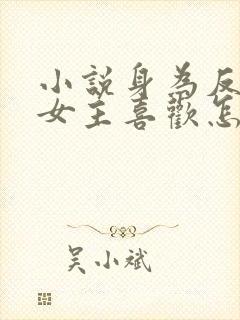 小說身為反
女主喜歡怎
吴小斌